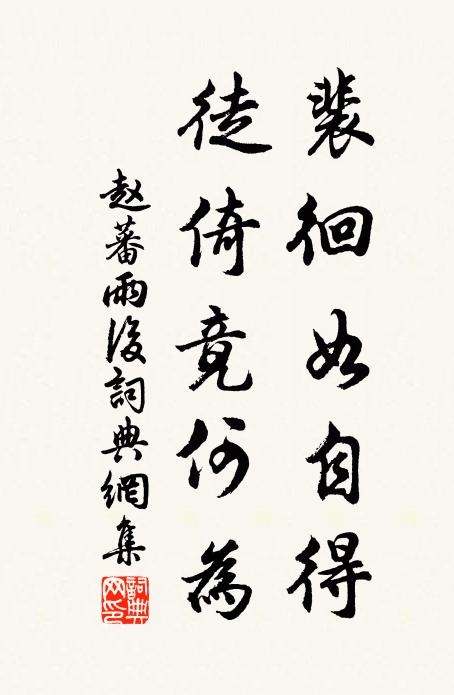 裴徊如自得
徒倚竟何為
赵蕃雨後詞典網集
詞典网印